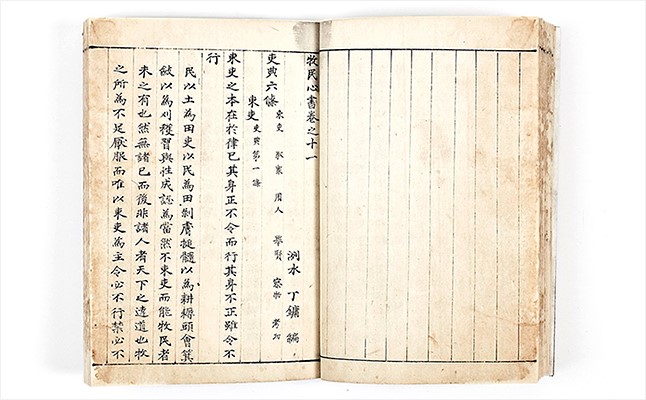 牧民心書卷之十一
洌水 丁鏞 編
吏典六條 束吏 馭衆 用人 擧賢 察物 考功
束吏 吏典第一條
束吏之本在於律己其身正不令而行其身不正雖令不
行
民以土為田吏以民為田剝膚搥髓以為耕耨頭會箕
斂以為刈穫習與性成認為當然不束吏而能牧民者
未之有也然無諸己而後非諸人者天下之達道也牧
之所為不足厭服而唯以束吏為主令必不行禁必不